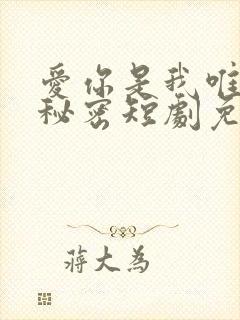 愛你是我唯
秘密短劇免
蔣大為